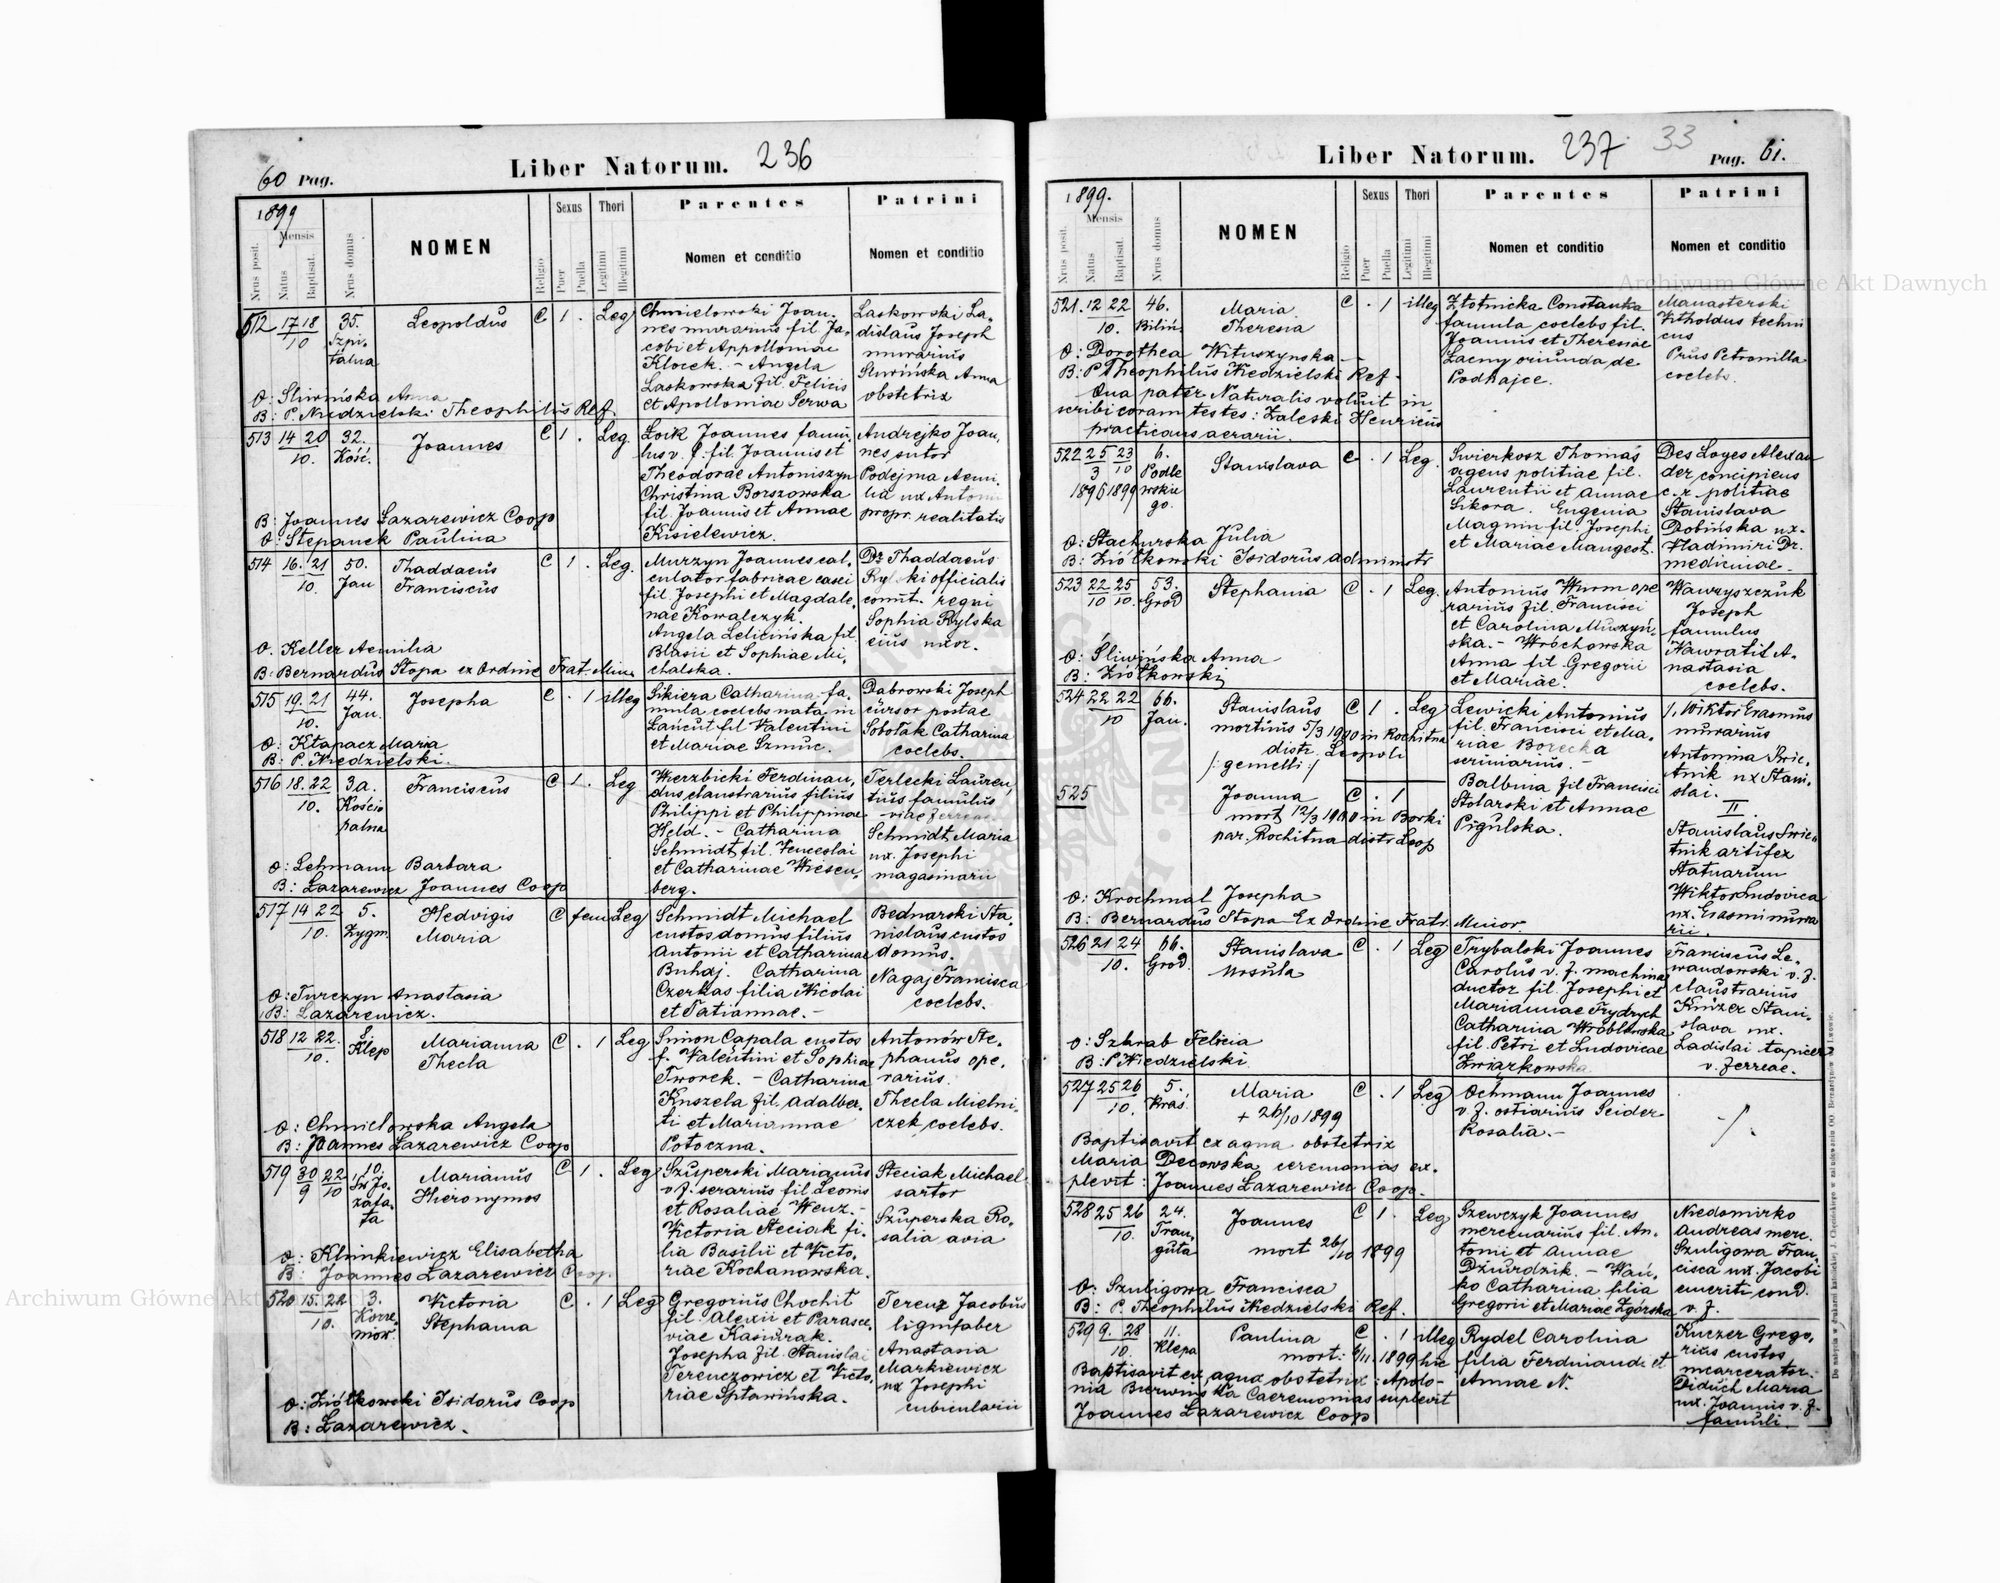 60 Pag.
Liber Natorum. 236
1899
Mensis
Nrus posit.
Natus
Baptisat.
Nrus domus
NOMEN
Religio
Sexus
Puer
Puella
Thori
Legitimi
Illegitimi
Parentes
Nomen et conditio
Patrini
Nomen et conditio
512 17 18 / 10 35. Szpitalna
Leopoldus C 1 . Leg
Chmielowski Joan-
nes murarius fil. Ja-
cobi et Appolloniae
Klocek. - Angela
Laskowska fil. Felicis
et Apolloniae Serwa
Laskowski La-
dislaus Joseph
murarius
Sliwińska Anna
obstetrix
O: Sliwińska Anna
B: P. Niedzielski Theophilus Ref.
513 14 20 / 10. 32. Kość.
Joannes C 1 . Leg.
Łoik Joannes famu-
lus v. f. fil. Joannis et
Theodorae Antoniszyn
Christina Borszowska
fil. Joannis et Annae
Kisielewicz.
Andrejko Joan-
nes sutor
Podejma Aemi-
lia ux Antoni
propr. realitatis
B: Joannes Łazarewicz Coop
O: Stepanek Paulina
514 16. 21 / 10. 50. Jan
Thaddaeus
Franciscus
C 1 . Leg.
Murzyn Joannes cal-
culator fabricae casei
fil. Josephi et Magdale-
nae Kowalczyk.
Angela Lelicińska fil.
Blasii et Sophiae Mi-
chalska.
Dr Thaddaeus
Rylski officialis
comit. regni
Sophia Rylska
eius uxor.
O. Keller Aemilia
B: Bernardus Stopa ex Ordine Frat. Min.
515 19. 21 / 10. 44. Jan.
Josepha C . 1 illeg
Sikiera Catharina fa-
mula coelebs nata in
Łańcut fil Valentini
et Mariae Szmuc.
Dabrowski Joseph
cursor postae
Sobotak Catharina
coelebs.
O: Kłapacz Maria
B: P. Niedzielski.
516 18. 22 / 10. 3.a. Kościopalna
Franciscus C 1 . Leg
Wierzbicki Ferdinan-
dus claustrarius filius
Philippi et Philippinae
Held. - Catharina
Schmidt fil. Venceslai
et Catharinae Wiesen-
berg.
Terlecki Lauren-
tius famulus
viae ferreae
Schmidt Maria
ux. Josephi
magasinarii
O: Lehmann Barbara
B: Łazarewicz Joannes Coop
517 14 22 / 10. 5. Zygm.
Hedvigis
Maria
C fem Leg
Schmidt Michael
custos domus filius
Antonii et Catharinae
Buhaj. Catharina
Czerkas filia Nicolai
et Tatiannae. -
Bednarski Sta-
nislaus custos
domus.
Nagaj Francisca
coelebs.
O: Turczyn Anastasia
B: Lazarewicz.
518 12 22. / 10. 8. Klep
Marianna
Thecla
C . 1 Leg
Simon Capala custos
f. Valentini et Sophiae
Tworek. - Catharina
Kuszela fil. Adalber-
ti et Mariannae
Potoczna.
Antonów Ste-
phanus ope-
rarius.
Thecla Mielni-
czek coelebs.
O: Chmielowska Angela
B: Joannes Łazarewicz Coop
519 30/9 22/10 10. Św Jozafata
Marianus
Hieronymos
C 1 . Leg
Szuperski Marianus
v. f. serarius fil Leonis
et Rosaliae Wenz. -
Victoria Steciak fi-
lia Basilii et Victo-
riae Kochanowska.
Steciak Michael
sartor
Szuperska Ro-
salia avia
O: Klimkiewicz Elisabetha
B: Joannes Łazarewicz Coop.
520 15. 22 / 10. 3.
Victoria
Stephania
C . 1 Leg
Gregorius Chochit
fil. Alexii et Parasce-
viae Kaszurak.
Josepha fil. Stanislai
Terenczowicz et Victo-
riae Spławińska.
Terenz Jacobus
lignifaber
Anastasia
Markiewicz
ux Josephi
cubicularii
O: Ziółkowski Isidorus Coop
B: Łazarewicz.
Liber Natorum. 237 33
Pag. 61.
1899.
Mensis
Nrus posit.
Natus
Baptisat.
Nrus domus
NOMEN
Religio
Sexus
Puer
Puella
Thori
Legitimi
Illegitimi
Parentes
Nomen et conditio
Patrini
Nomen et conditio
521. 12 22 / 10. 46. Biliń.
Maria
Theresia
C . 1 illeg
Złotnicka Constantia
famula coelebs fil.
Joannis et Theresiae
Łacny oriunda de
Podhajce.
Manasterski
Vitholdus techni
cus
Prus Petronilla
coelebs.
O: Dorothea Wituszynska
B: P. Theophilus Niedzielski Ref.
Qua pater Naturalis voluit in-
scribi coram testes: Zaleski Henricus
practicans aerarii.
522 25/3 1896 23/10 1899 6. Podlewskiego.
Stanislava C . 1 Leg.
Swierkosz Thomas
agens politiae fil.
Laurentii et Annae
Sikora. Eugenia
Magnin fil. Josephi
et Mariae Maugest.
Des Loges Alexan
der concipiens
c. r. politiae
Stanislava
Dobińska ux.
Vladimiri Dr.
medicinae.
O: Stachurska Julia
B: Ziółkowski Isidorus administr
523 22 25 / 10 10. 53. Grod
Stephania C . 1 Leg.
Antonius Wurm ope
rarius fil. Francisci
et Carolina Muszyń-
ska. - Wróchowska
Anna fil Gregorii
et Mariae.
Wawryszczuk
Joseph
famulus
Nawratil A-
nastasia
coelebs.
O: Śliwińska Anna
B: Ziółkowski
524 22 22 / 10 66. Jan.
Stanislaus C 1 . Leg
mortuus 5/3 1900 in Rochitna
distr. Leopoli
/: gemelli :/
Lewicki Antonius
fil. Francisci et Ma-
riae Borecka
seriniarius. -
Balbina fil Francisci
Stolarski et Annae
Pigulska.
I. Wiktor Erasmus
murarius
Antonina Swie-
tnik ux Stani-
slai.
II
Stanislaus Swie-
tnik artifex
statuarum
Wiktor Ludovica
ux. Erasmi mura
rii.
525
Joanna C . 1
mort 12/3 1900 in Borki
par. Rochitna distr Leop
O: Krochmal Josepha
B: Bernardus Stopa Ex Ordine Fratr. Minor.
526 21 24 / 10. 66. Grod.
Stanislava
Ursula
C . 1 Leg
Trybalski Joannes
Carolus v. f. machinae
ductor fil. Josephi et
Mariannae Frydrych
Catharina Wróblewska
fil. Petri et Ludovicae
Związkowska
Franciscus Le-
wandowski v. f.
claustrarius
Knizer Stani-
slava ux.
Ladislai tapicer
v. ferreae.
O: Szkrab Felicia
B: P. Niedzielski
527 25 26 / 10. 5. Kraś.
Maria C . 1 Leg
+ 26/10 1899
Ochmann Joannes
v. f. ostiarius Seider
Rosalia. -
Baptisavit ex aqua obstetrix
Maria Decowska ceremonias ex-
plevit: Joannes Łazarewicz Coop.
528 25 26 / 10. 24. Franguta
Joannes C 1 . Leg
mort 26/10 1899
Szewczyk Joannes
mercenarius fil. An-
tonii et Annae
Dziurdzik. - Wań-
ko Catharina filia
Gregorii et Mariae Zgórska
Niedomirko
Andreas merc.
Szuligowa Fran-
cisca ux. Jacobi
emeriti cond.
v. f.
O: Szuligowa Francisca
B: P. Theophilus Niedzielski Ref.
529 9. 28 / 10. 11. Klepa
Paulina C . 1 illeg
mort. 6/11. 1899 hic
Rydel Carolina
filia Ferdinandi et
Annae N.
Kuczer Grego-
rius custos
incarcerator.
Diduch Maria
ux. Joannis v. f.
famuli.
Baptisavit ex aqua obstetrix: Apolo-
nia Bierwinska Caeremonias suplevit
Joannes Łazarewicz Coop
Archiwum Główne Akt Dawnych
Archiwum Główne Akt Dawnych